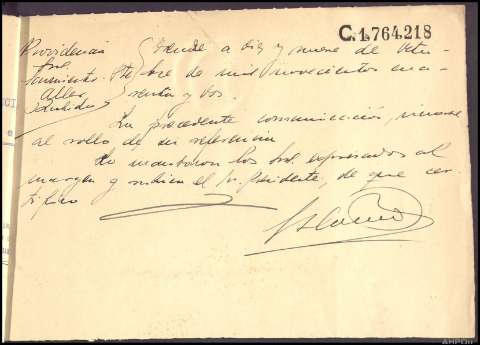 C.1.764.218
Providencia
Sres.
Aller
a diez y nueve de Octu-
bre de mil novecientos cua-
renta y dos.
La precedente comunicación, únase
al rollo de su referencia
Lo mandaron los Sres expresados al
margen y rubrica el Sr. Presidente, de que cer-
tifico